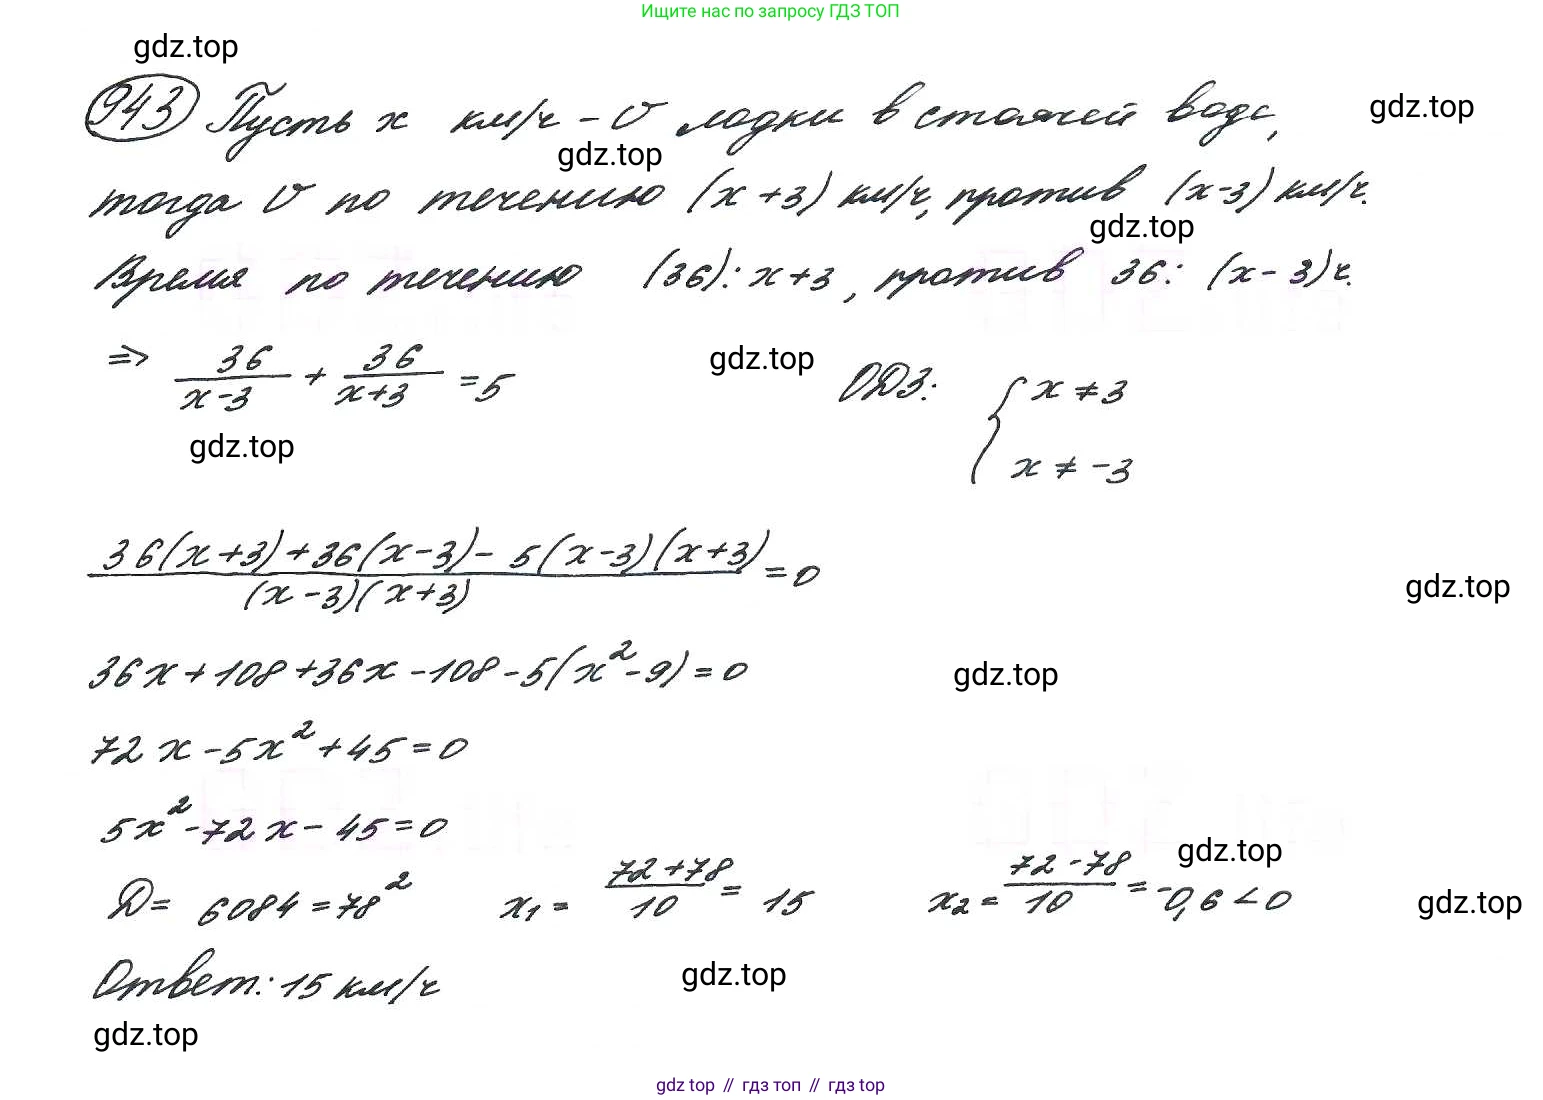 Ищите нас по запросу ГДЗ ТОП
gdz.top
943 Пусть x км/ч - v лодки в стоячей воде,
gdz.top
gdz.top
тогда v по течению (x+3) км/ч, против (x-3) км/ч.
gdz.top
Время по течению (36): x+3, против 36: (x-3) ч.
⇒ 36/(x-3) + 36/(x+3) = 5
gdz.top
ОДЗ: { x ≠ 3
x ≠ -3
gdz.top
(36(x+3)+36(x-3)-5(x-3)(x+3))/((x-3)(x+3)) = 0
gdz.top
36x+108+36x-108-5(x²-9)=0
gdz.top
72x-5x²+45=0
5x²-72x-45=0
gdz.top
D= 6084=78² x₁= (72+78)/10 = 15 x₂= (72-78)/10 = -0,6<0
gdz.top
Ответ: 15 км/ч
gdz.top
gdz.top
gdz top // гдз топ // gdz top